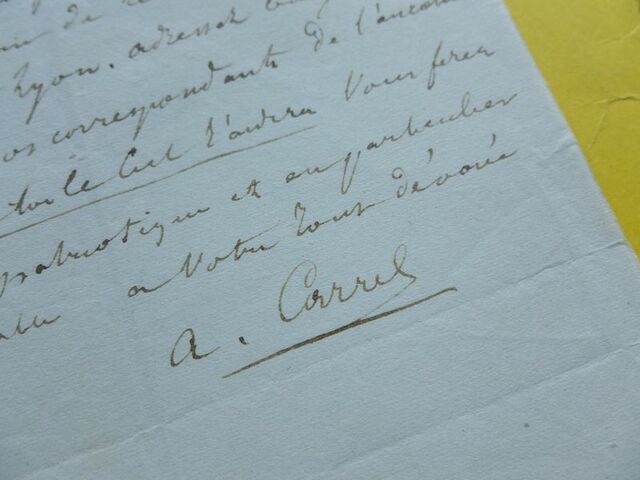 de
Lyon. adressez
correspondants de l'ancien
toi le Ciel t'aidera Vous ferez
patriotique et en particulier
a Votre tout dévoué
A. Carrel